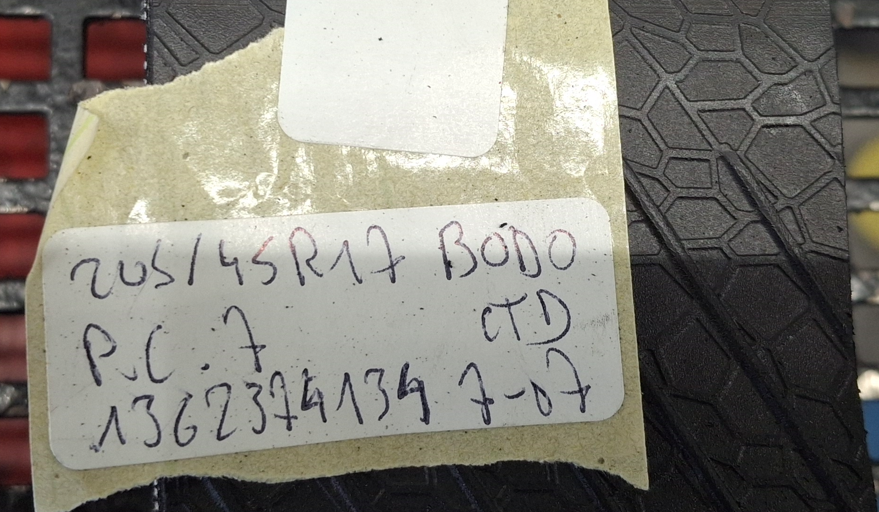 205/45R17 BODO
P.C.7 CTD
1362374134 7-07